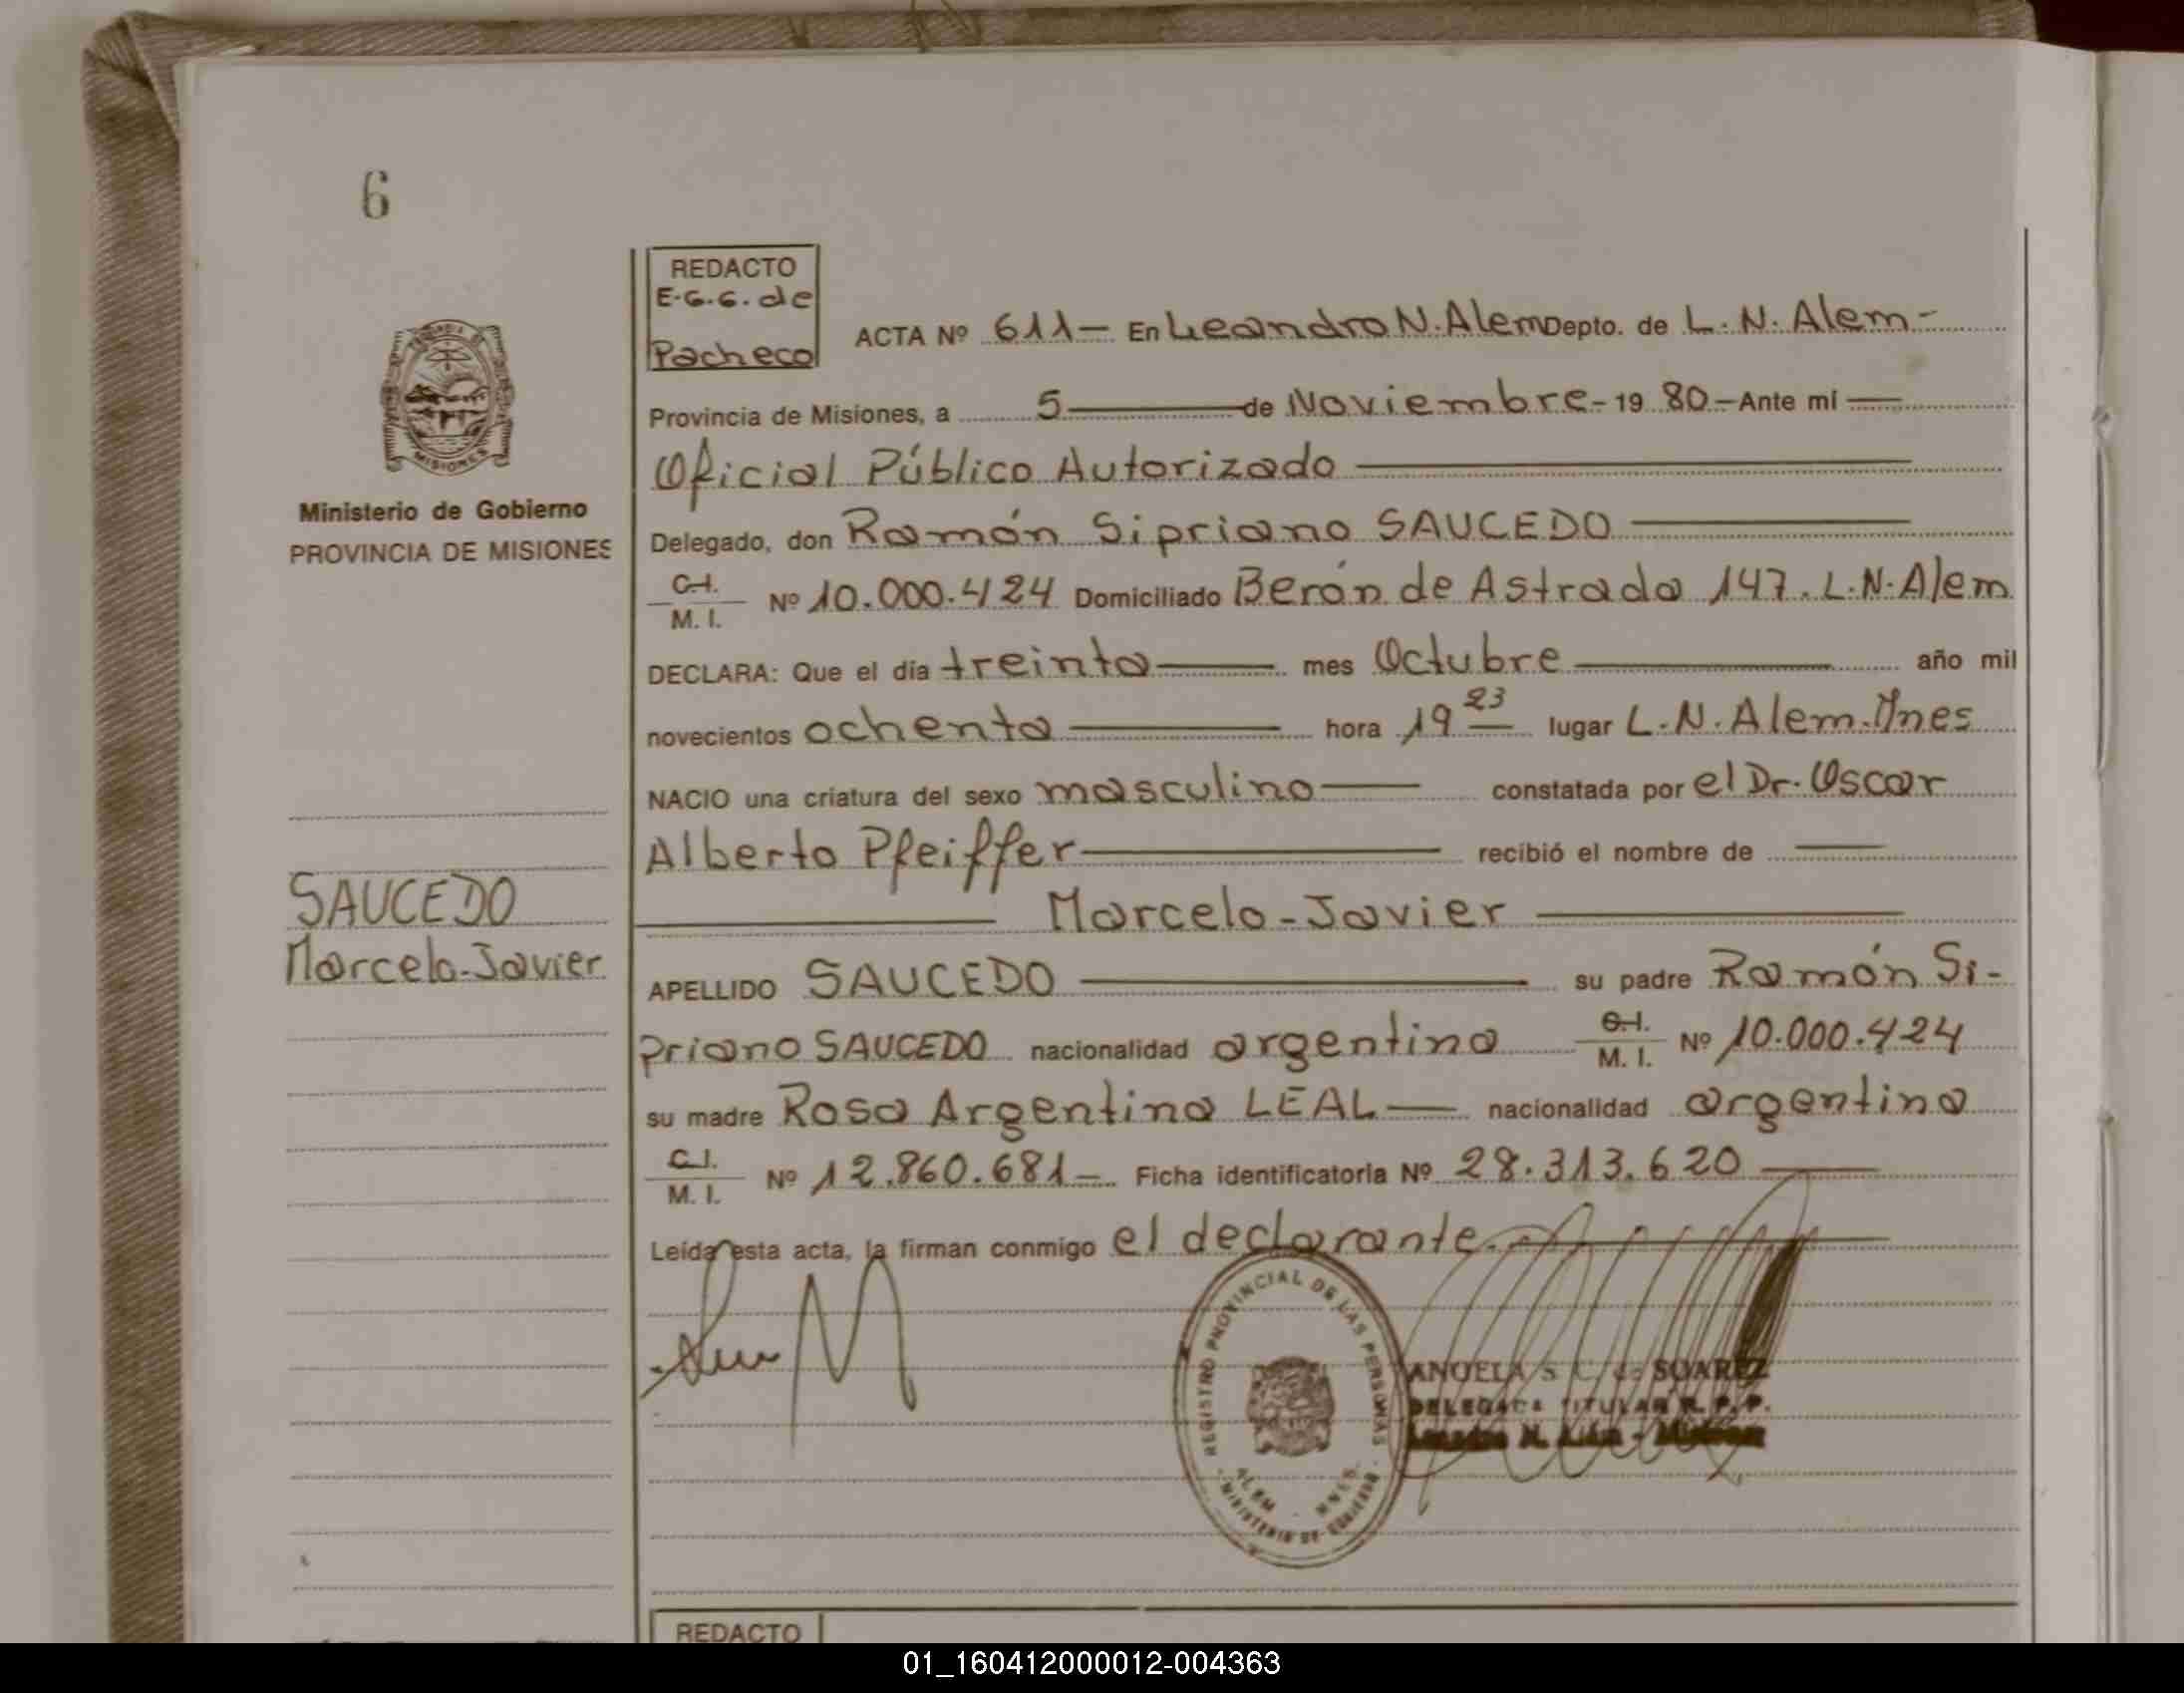 6
REDACTO
E.G.G. de
Pacheco
ACTA Nº 611- En Leandro N. Alem Depto. de L. N. Alem-
Provincia de Misiones, a 5 de Noviembre- 19 80- Ante mi
Oficial Público Autorizado
Delegado, don Ramón Sipriano SAUCEDO
C.I.
M. I. Nº 10.000.424 Domiciliado Berón de Astrada 147. L.N. Alem
DECLARA: Que el día treinta mes Octubre año mil
novecientos ochenta hora 19 23 lugar L. N. Alem. Mnes
NACIO una criatura del sexo masculino constatada por el Dr. Oscar
Alberto Pfeiffer recibió el nombre de
Marcelo-Javier
APELLIDO SAUCEDO su padre Ramón Si-
priano SAUCEDO nacionalidad argentina C.I.
M. I. Nº 10.000.424
su madre Rosa Argentina LEAL nacionalidad argentina
C.I.
M. I. Nº 12.860.681- Ficha identificatoria Nº 28.313.620
Leída esta acta, la firman conmigo el declarante.
MISIONES
Ministerio de Gobierno
PROVINCIA DE MISIONES
SAUCEDO
Marcelo-Javier
REGISTRO PROVINCIAL DE LAS PERSONAS
ALEM MNES
MINISTERIO DE GOBIERNO
ANGELA S. C. de SUAREZ
DELEGADA TITULAR R. P. P.
Leandro N. Alem - Misiones
REDACTO
01_160412000012-004363